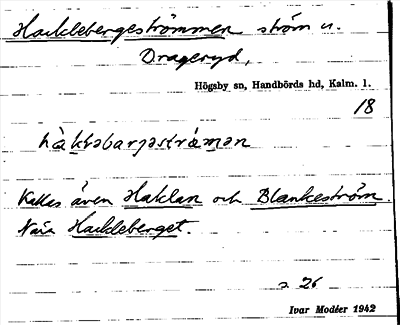 Hackelebergeströmmen ström n.
Drageryd,
Högsby sn, Handbörds hd, Kalm. l.
18
hàkləbarjəstrǻmən
Kallas även Haklan och Blankeström.
Nära Hackleberget.
s 26
Ivar Modéer 1942